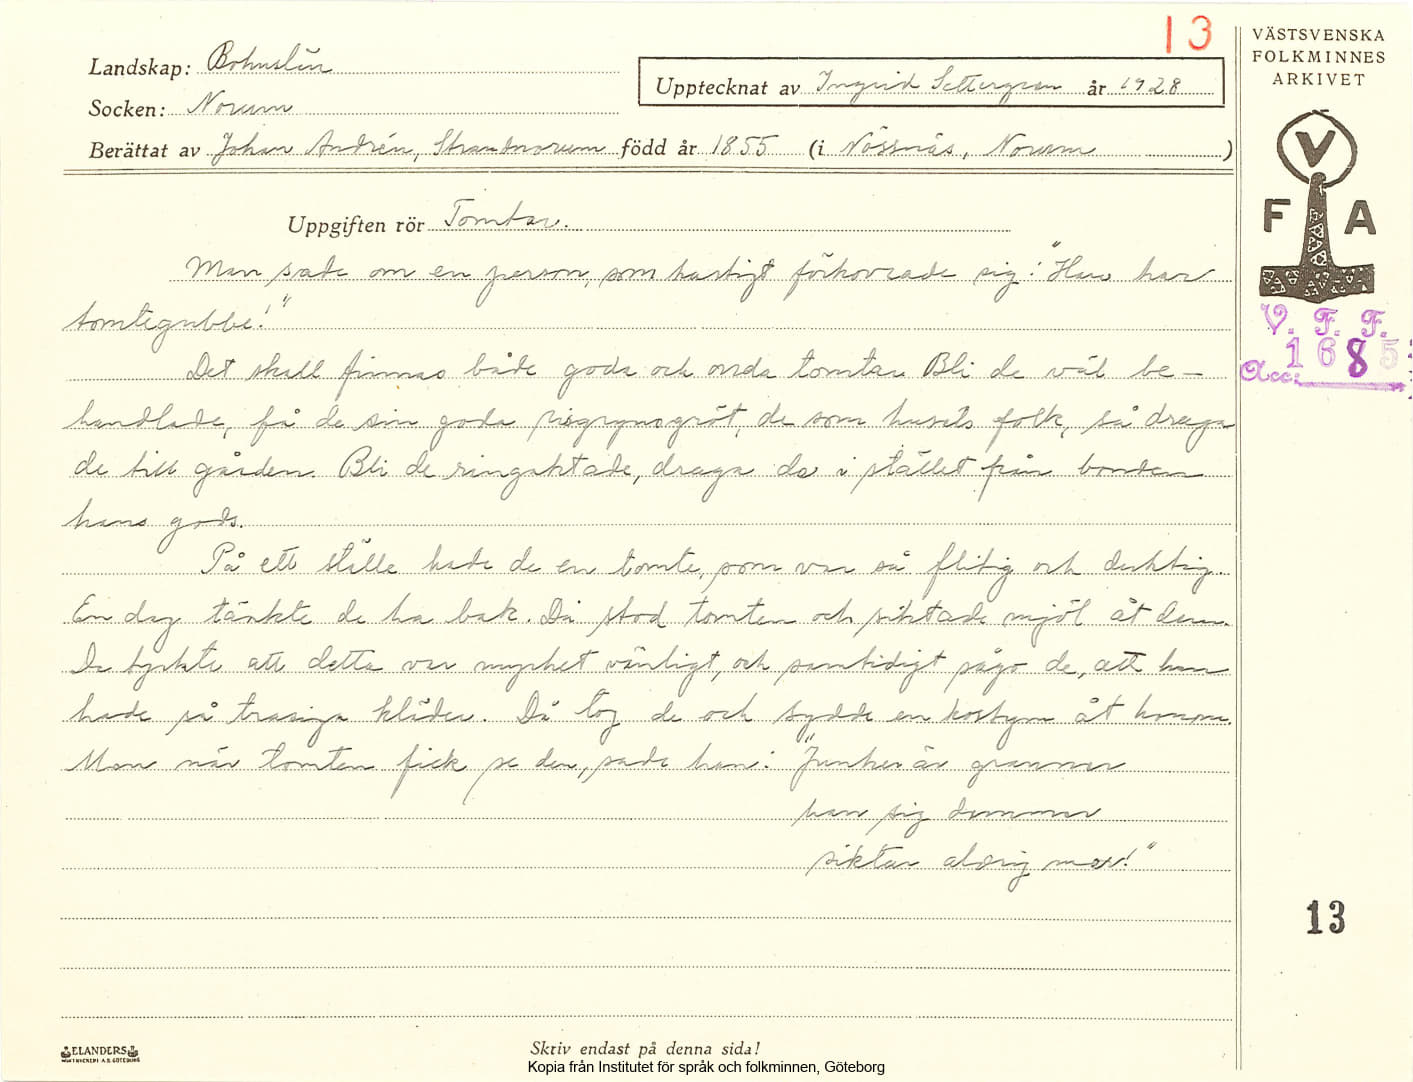 13
VÄSTSVENSKA
FOLKMINNES
ARKIVET
Landskap: Bohuslän
Upptecknat av Ingrid Settergren år 1928
Socken: Norum
Berättat av Johan Andrén, Strandnorum född år 1855 (i Nössnäs, Norum )
V
F A
Uppgiften rör Tomtar.
Man sade om en person, som hastigt förkovrade sig: "Han har
tomtegubbe!"
V. F. F.
Acc: 1685
Det skall finnas både goda och onda tomtar. Bli de väl be-
handlade, få de sin goda risgrynsgröt, de som husets folk, så draga
de till gården. Bli de ringaktade, draga de i stället från bonden
hans gods.
På ett ställe hade de en tomte, som var så flitig och duktig.
En dag tänkte de ha bak. Då stod tomten och siktade mjöl åt dem.
De tyckte att detta var mycket vänligt, och samtidigt sågo de, att han
hade så trasiga kläder. Då tog de och sydde en kostym åt honom.
Men när tomten fick se den, sade han: "Junker är grannar
han sig dammar
siktar aldrig mer!"
13
ELANDERS
Skriv endast på denna sida!
Kopia från Institutet för språk och folkminnen, Göteborg